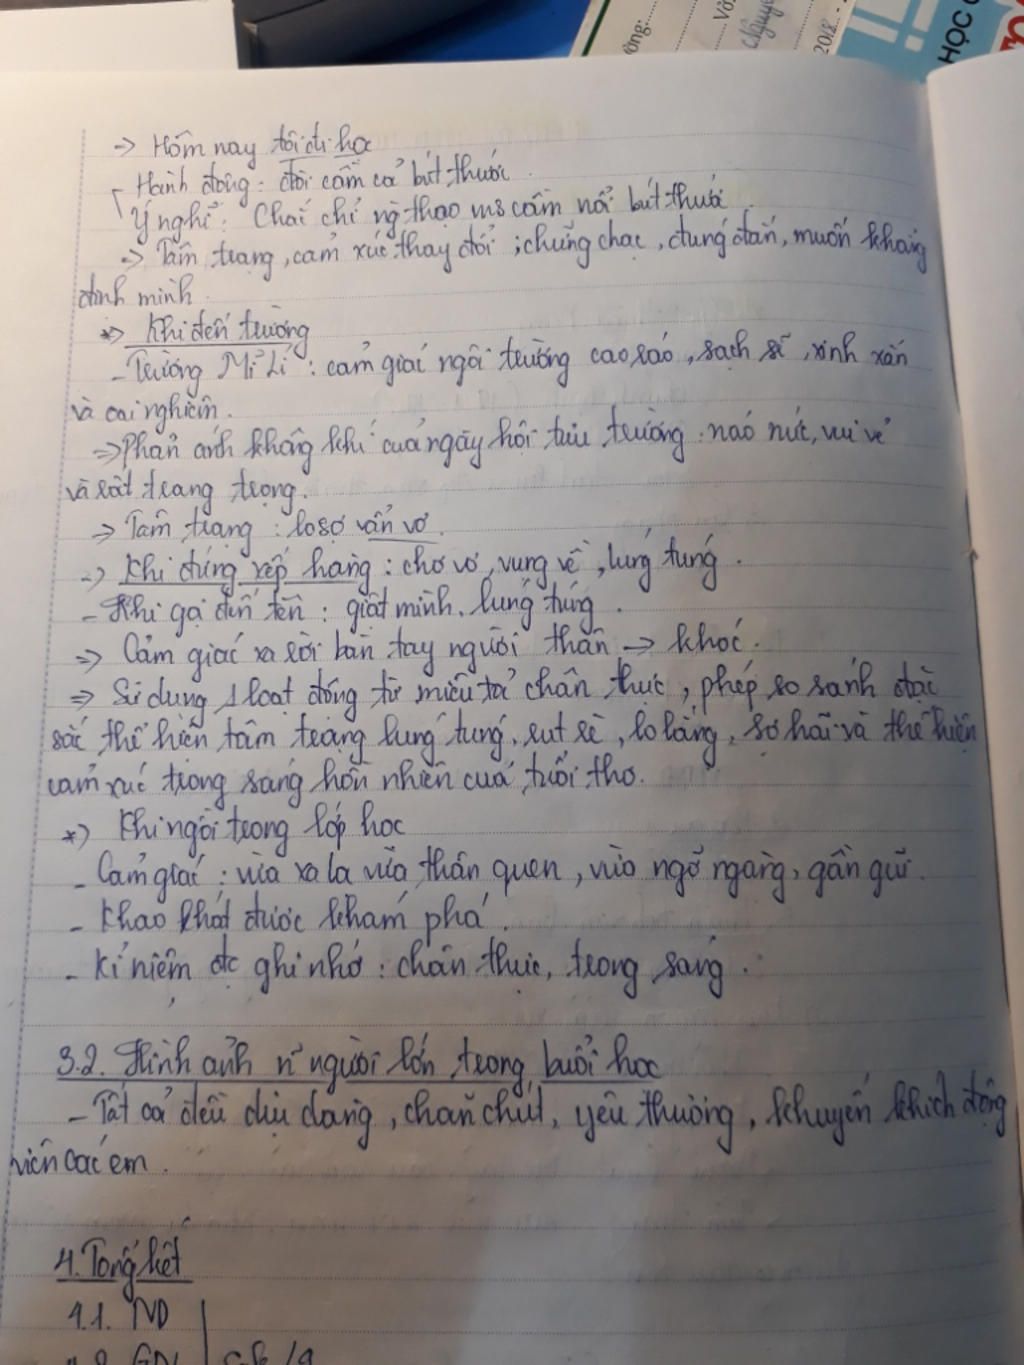 ường:
Vở
Nguyễ
2018 -
HỌC
-> Hôm nay tôi đi học
Hành động: đòi cầm cả bút thước.
Ý nghĩ: Chắc chỉ ng thạo ms cầm nổi bút thước.
-> Tâm trạng, cảm xúc thay đổi; chững chạc, đứng đắn, muốn khẳng
định mình.
*) Khi đến trường
- Trường Mĩ Lí: cảm giác ngôi trường cao ráo, sạch sẽ, xinh xắn
và oai nghiêm.
=> Phản ánh không khí của ngày hội tựu trường: náo nức, vui vẻ
và rất trang trọng.
=> Tâm trạng: lo sợ vẩn vơ.
=> Khi đứng xếp hàng: chơ vơ, vụng về, lúng túng.
- Khi gọi đến tên: giật mình, lúng túng.
=> Cảm giác xa rời bàn tay người thân -> khóc.
=> Sử dụng 1 loạt động từ miêu tả chân thực, phép so sánh đặc
sắc, thể hiện tâm trạng lúng túng, rụt rè, lo lắng, sợ hãi và thể hiện
cảm xúc trong sáng hồn nhiên của tuổi thơ.
*) Khi ngồi trong lớp học
- Cảm giác: vừa xa lạ vừa thân quen, vừa ngỡ ngàng, gần gũi.
- Khao khát được khám phá.
- Kỉ niệm đc ghi nhớ: chân thực, trong sáng.
3.2. Hình ảnh n~ người lớn trong buổi học
- Tất cả đều dịu dàng, chăm chút, yêu thương, khuyến khích động
viên các em.
4. Tổng kết
4.1. ND
4.2. GDN sgk/9